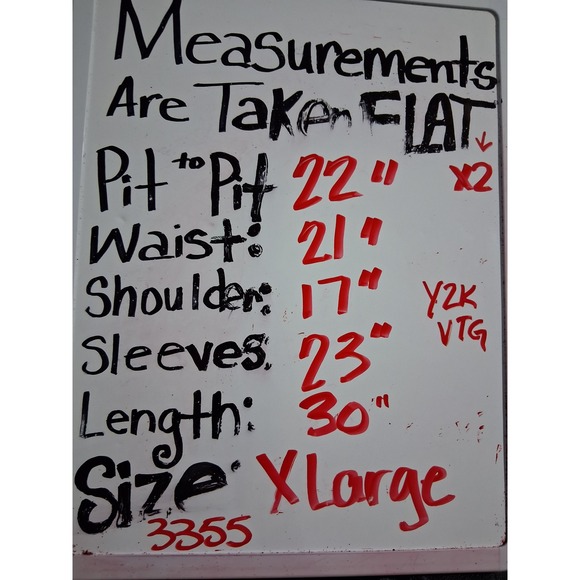 Measurements
Are Taken FLAT ↓
Pit to Pit 22" x2
Waist: 21"
Shoulder: 17" Y2K
VTG
Sleeves: 23"
Length: 30"
Size: XLarge
3355